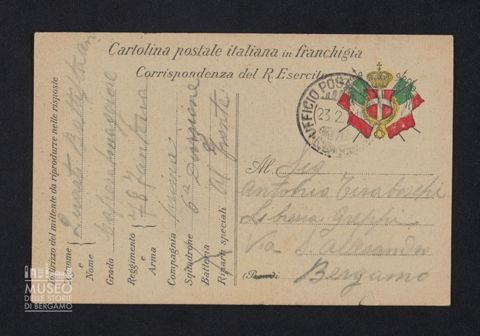 Cartolina postale italiana in franchigia
Corrispondenza del R. Esercito
UFFICIO POSTA
23.2
Al Sig
Antonio Tiraboschi
Libreria Greppi
Via S. Alessandro
Bergamo
(Provdi)
Indirizzo del mittente da riprodurre nelle risposte
Cognome
e
Nome
Grado caporalmaggiore
Reggimento
e
Arma
78 Fanteria
Compagnia
Squadrone
Batteria
Reparti speciali
6a Divisione
al fronte
MUSEO
DELLE STORIE
DI BERGAMO